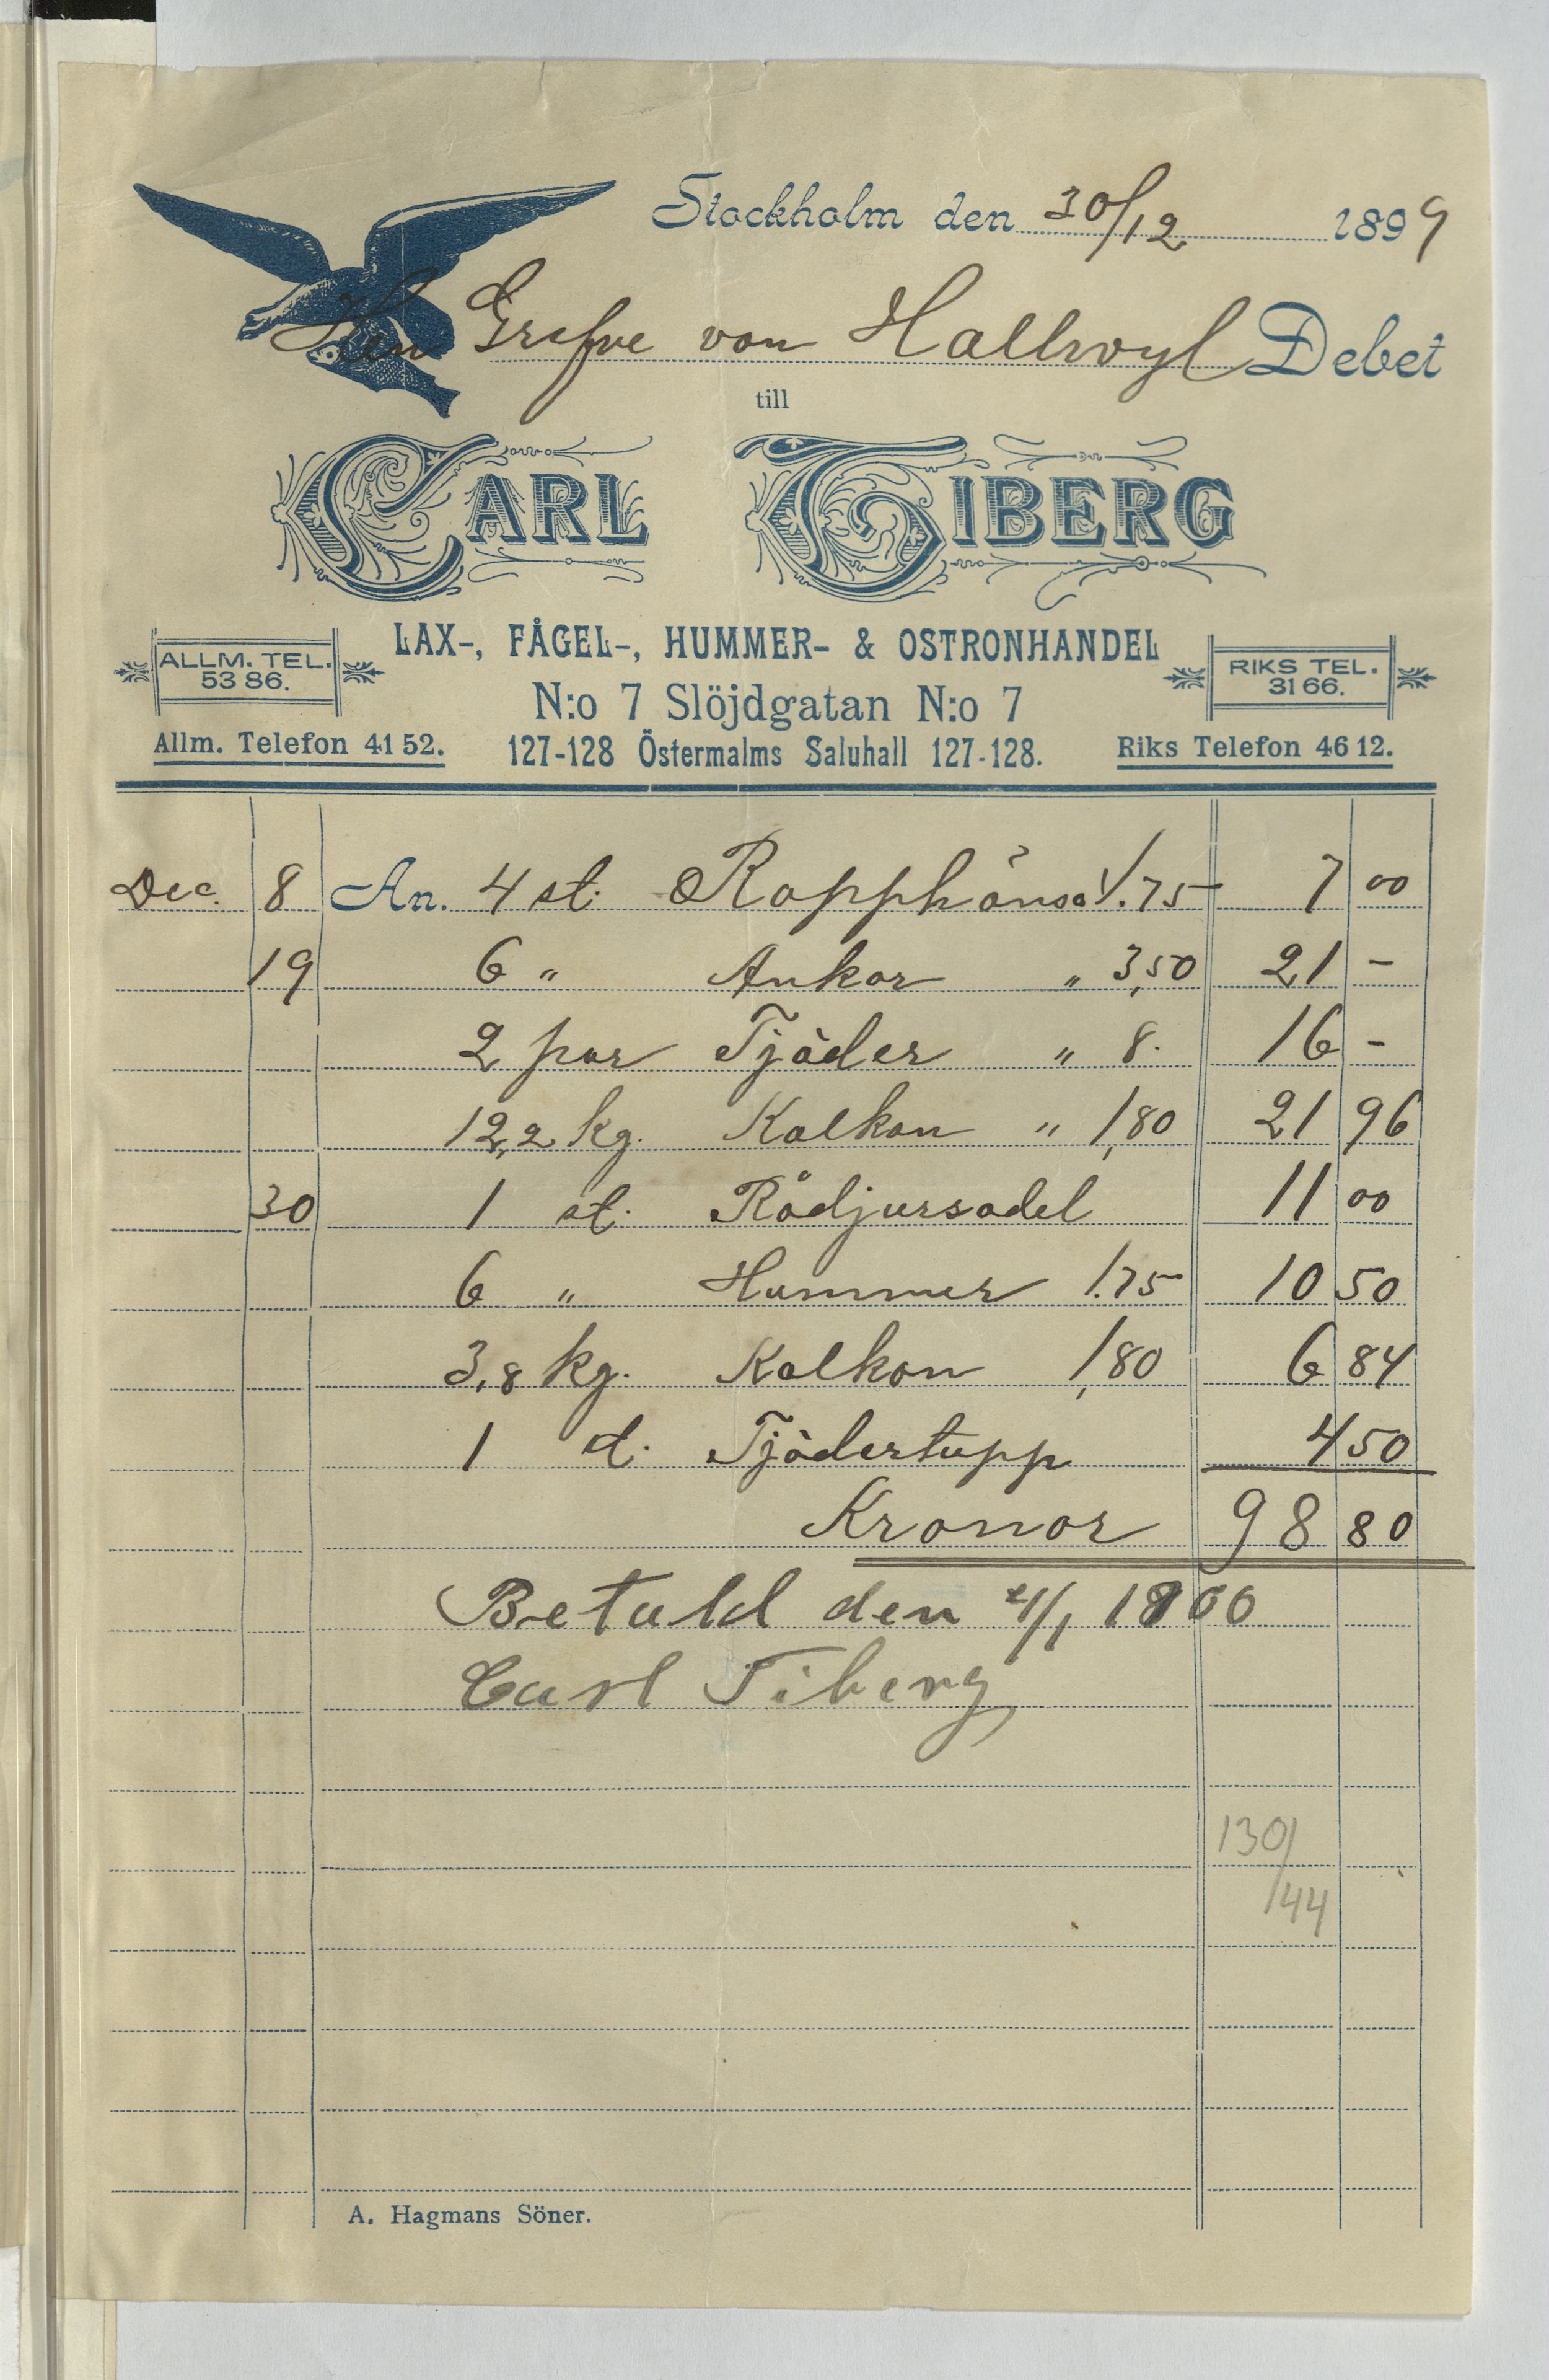 Stockholm den 30/12 1899
Herr Grefve von Hallwyl Debet
till
CARL TIBERG
LAX-, FÅGEL-, HUMMER- & OSTRONHANDEL
ALLM. TEL. 53 86.
RIKS TEL. 31 66.
N:o 7 Slöjdgatan N:o 7
Allm. Telefon 41 52. 127-128 Östermalms Saluhall 127-128. Riks Telefon 46 12.
Dec. 8 An. 4 st. Rapphöns à 1.75 7 00
19 6 " Ankor " 3,50 21 -
2 par Tjäder " 8. 16 -
12,2 kg. Kalkon " 1,80 21 96
30 1 st. Rådjurssadel 11 00
6 " Hummer 1.75 10 50
3,8 kg. Kalkon 1,80 6 84
1 st. Tjädertupp 4 50
Kronor 98 80
Betald den 4/1 1900
Carl Tiberg
130/
144
A. Hagmans Söner.